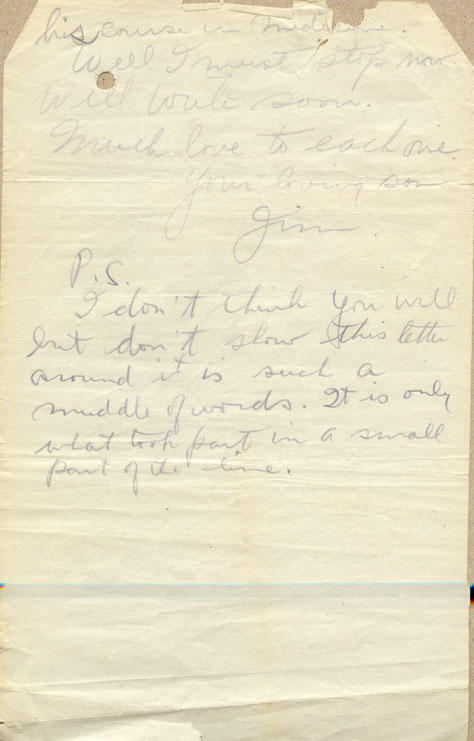 his course in Medicine.
Well I must stop now.
Will write soon.
Much love to each one
Your loving son
Jim.
P.S.
I don't think you will
but don't show this letter
around it is such a
muddle of words. It is only
what took part in a small
part of the line.